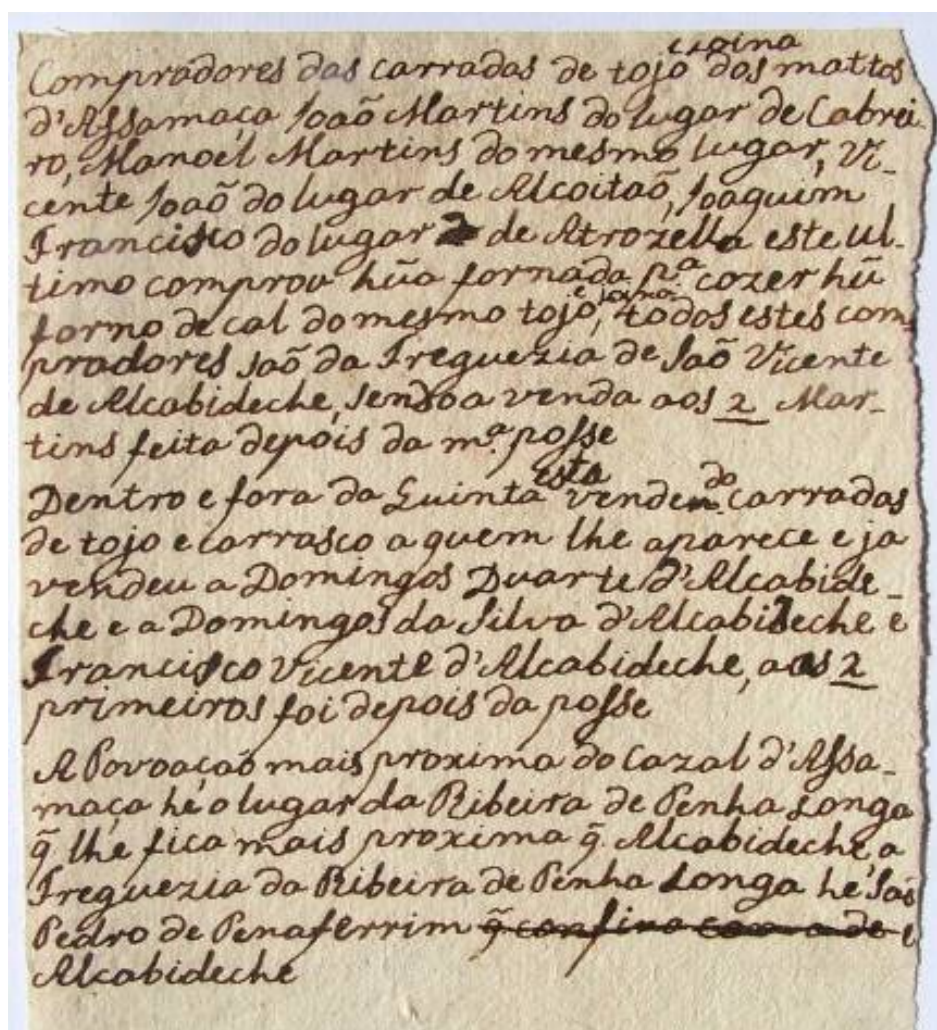 Compradores das carradas de tojo dos mattos
d'Assamaça João Martins do lugar de Cabrei-
ro, Manoel Martins do mesmo lugar, Vi-
cente João do lugar de Alcoitaõ, Joaquim
Francisco do lugar de Atrozella este ul-
timo comprou hũa fornada p.ª cozer hũ
forno de cal do mesmo tojo, todos estes com
pradores saõ da Freguezia de Saõ Vicente
de Alcabideche, sendo a venda aos 2 Mar-
tins feita depois da m.ª posse
Dentro e fora da Quinta esta vendendo carradas
de tojo e carrasco a quem lhe aparece e ja
vendeu a Domingos Duarte d'Alcabide-
che e a Domingos da Silva d'Alcabideche e
Francisco Vicente d'Alcabideche, aos 2
primeiros foi depois da posse
A Povoaçaõ mais proxima do Cazal d'Assa-
maça hé o lugar da Ribeira de Penha Longa
q̃ lhe fica mais proxima q̃ Alcabideche, a
Freguezia da Ribeira de Penha Longa hé Saõ
Pedro de Penaferrim q̃ confina com a de
Alcabideche